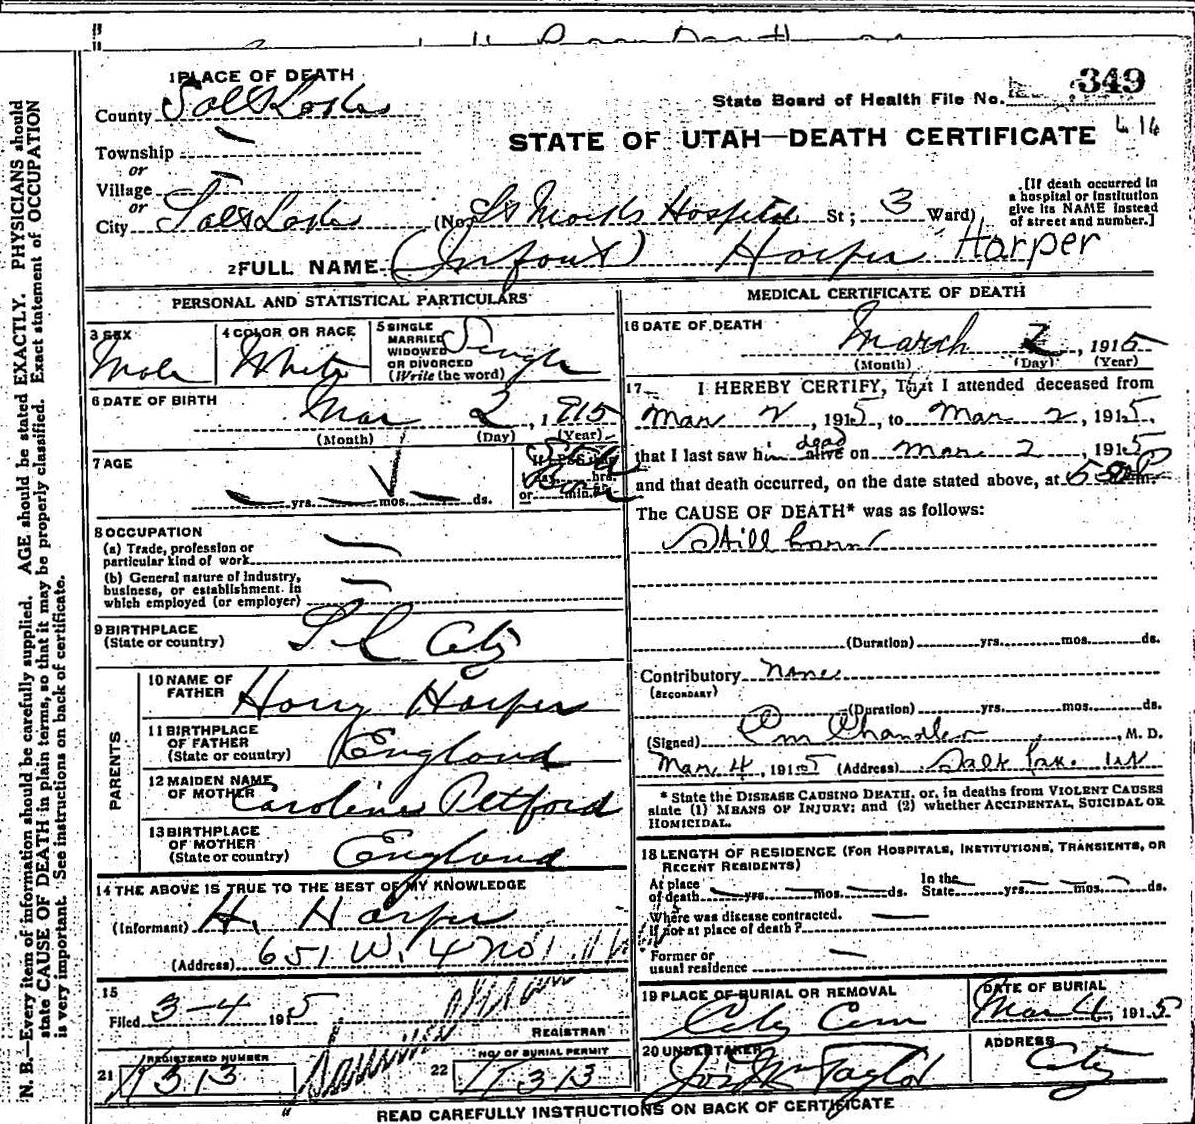 1 PLACE OF DEATH
County Salt Lake
State Board of Health File No. 349
414
STATE OF UTAH—DEATH CERTIFICATE
Township
or
Village
or
City Salt Lake (No. St Marks Hospital St; 3 Ward)
[If death occurred in a hospital or institution give its NAME instead of street and number.]
2 FULL NAME (Infant) Harper Harper
PERSONAL AND STATISTICAL PARTICULARS
3 SEX Male
4 COLOR OR RACE White
5 SINGLE MARRIED WIDOWED OR DIVORCED (Write the word) Single
6 DATE OF BIRTH
Mar 2, 1915
(Month) (Day) (Year)
7 AGE
yrs. mos. ds.
If LESS than day, hrs. or min.
Still Born
8 OCCUPATION
(a) Trade, profession or particular kind of work
(b) General nature of industry, business, or establishment in which employed (or employer)
9 BIRTHPLACE
(State or country) S L City
PARENTS
10 NAME OF FATHER Harry Harper
11 BIRTHPLACE OF FATHER (State or country) England
12 MAIDEN NAME OF MOTHER Caroline Pettford
13 BIRTHPLACE OF MOTHER (State or country) England
14 THE ABOVE IS TRUE TO THE BEST OF MY KNOWLEDGE
(Informant) H. Harper
(Address) 651 W. 4 No
15
Filed 3-4 1915
REGISTRAR
21 REGISTERED NUMBER 313
22 NO. OF BURIAL PERMIT 313
MEDICAL CERTIFICATE OF DEATH
16 DATE OF DEATH
March 2, 1915
(Month) (Day) (Year)
17 I HEREBY CERTIFY, That I attended deceased from
Mar 2, 1915, to Mar 2, 1915,
that I last saw him dead alive on Mar 2, 1915
and that death occurred, on the date stated above, at P m.
The CAUSE OF DEATH* was as follows:
Still born
(Duration) yrs. mos. ds.
Contributory none
(SECONDARY)
(Duration) yrs. mos. ds.
(Signed) Chandler, M. D.
Mar 4, 1915 (Address) Salt Lake Ut
* State the DISEASE CAUSING DEATH, or, in deaths from VIOLENT CAUSES
state (1) MEANS OF INJURY; and (2) whether ACCIDENTAL, SUICIDAL OR
HOMICIDAL.
18 LENGTH OF RESIDENCE (FOR HOSPITALS, INSTITUTIONS, TRANSIENTS, OR
RECENT RESIDENTS)
At place of death yrs. mos. ds. In the State yrs. mos. ds.
Where was disease contracted.
If not at place of death?
Former or
usual residence
19 PLACE OF BURIAL OR REMOVAL
City Cem
DATE OF BURIAL
Mar 4, 1915
20 UNDERTAKER
Jos Wm Taylor
ADDRESS
City
READ CAREFULLY INSTRUCTIONS ON BACK OF CERTIFICATE
N. B.—Every item of information should be carefully supplied. AGE should be stated EXACTLY. PHYSICIANS should
state CAUSE OF DEATH in plain terms, so that it may be properly classified. Exact statement of OCCUPATION
is very important. See instructions on back of certificate.